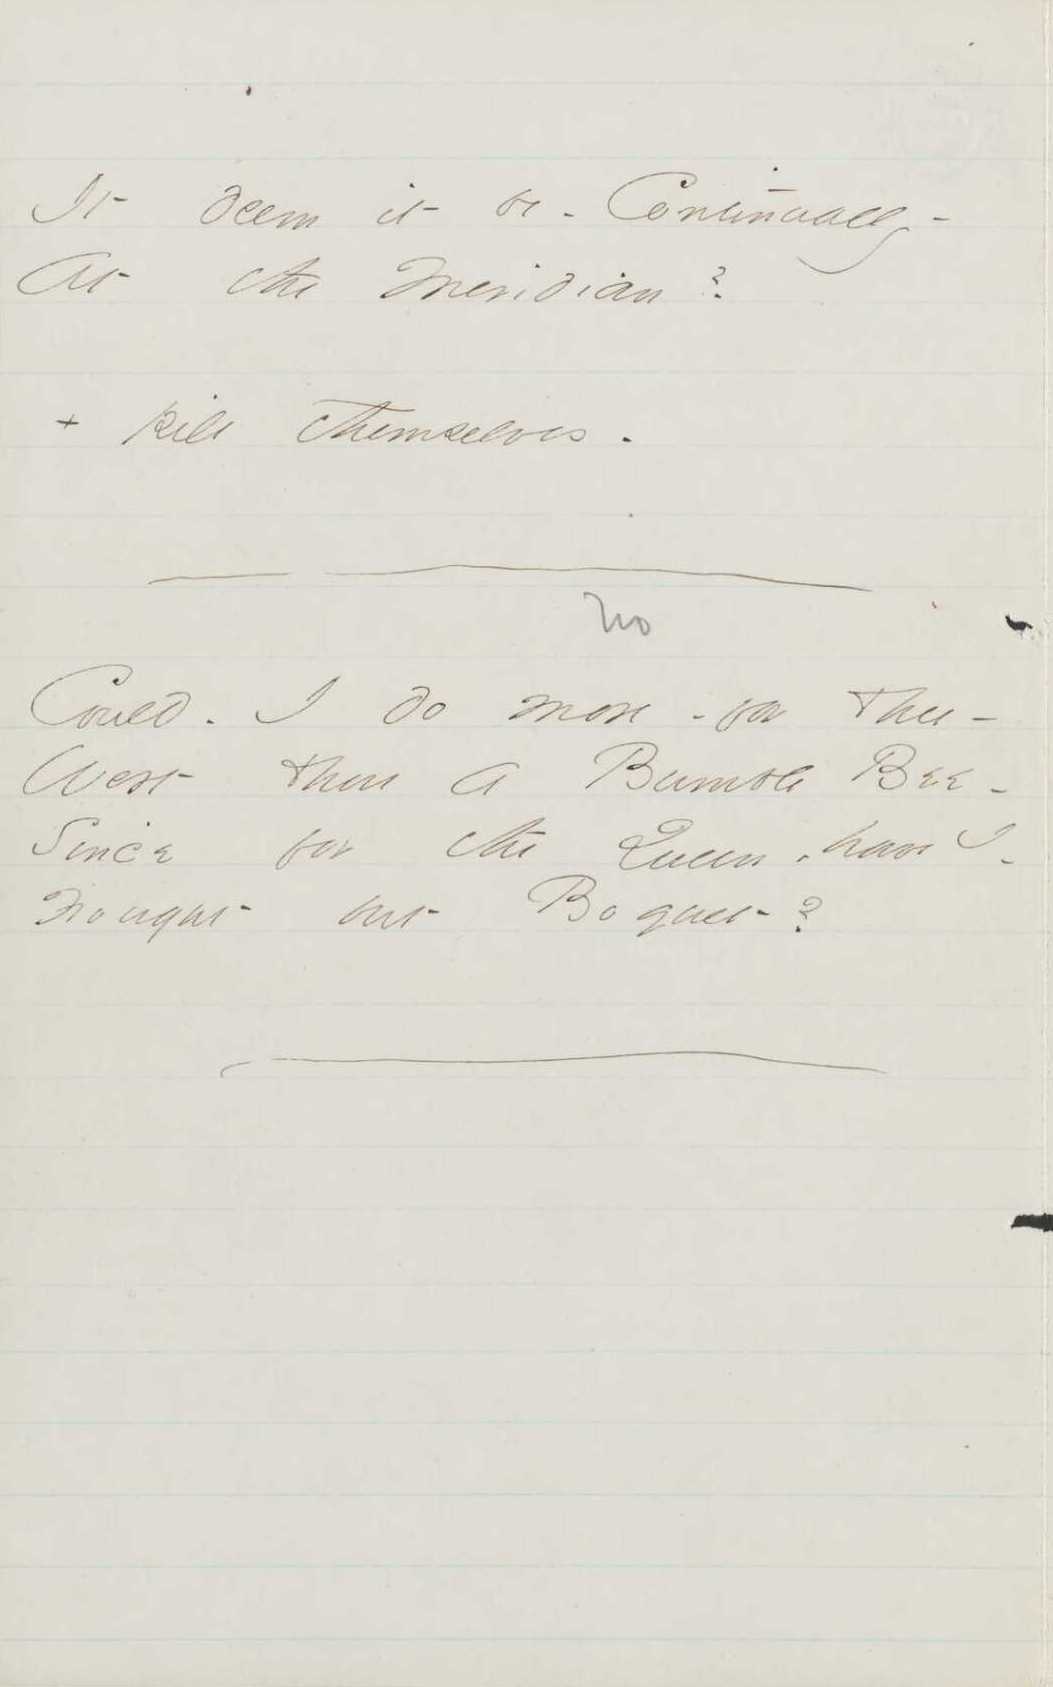 It deem it be - Continually -
At the Meridian?
+ kill themselves.
no
Could - I do more - for Thee -
Wert Thou a Bumble Bee -
Since for the Queen, have I -
Nought but Boquet - ?